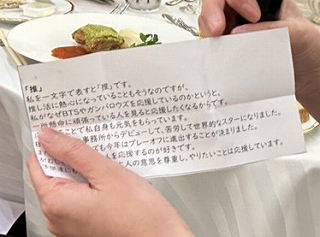 「推」
私を一文字で表すと「推」です。
推し活に熱心になっていることもそうなのですが、
私がなぜBTSやガンバロウズを応援しているのかというと、
一所懸命に頑張っている人を見ると応援したくなるからです。
ことで私自身も元気をもらっています。
事務所からデビューして、苦労して世界的なスターになりました。
も今年はプレーオフに進出することが決まりました。
人を応援するのが好きです。
人の意思を尊重し、やりたいことは応援しています。